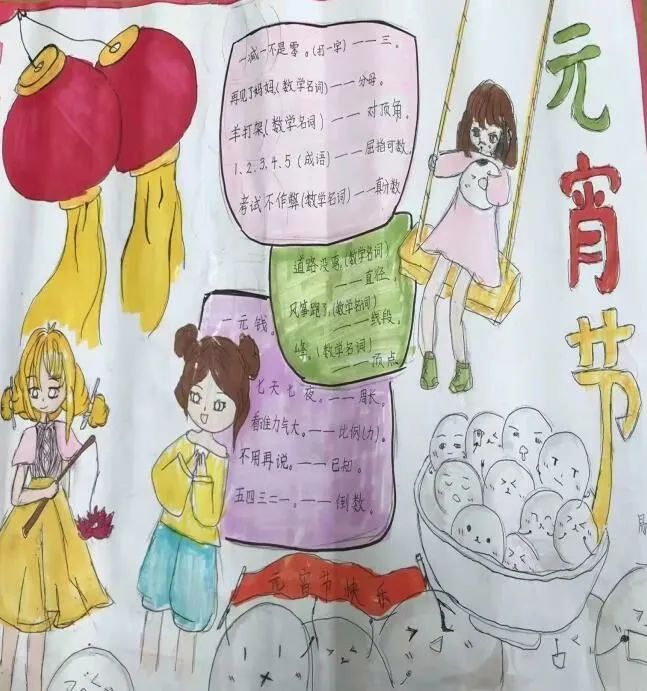 元宵节
一减一不是零。(打一字)——三。
再见了妈妈,(数学名词)——分母。
羊打架(数学名词)——对顶角。
1、2、3、4、5(成语)——屈指可数。
考试不作弊(数学名词)——真分数
道路没弯,(数学名词)
——直径。
风筝跑了,(数学名词)
——线段。
峰。(数学名词)
——顶点
一元钱。
七天七夜。——周长。
看谁力气大。——比例(力)。
不用再说。——已知。
五四三二一。——倒数。
元宵节快乐